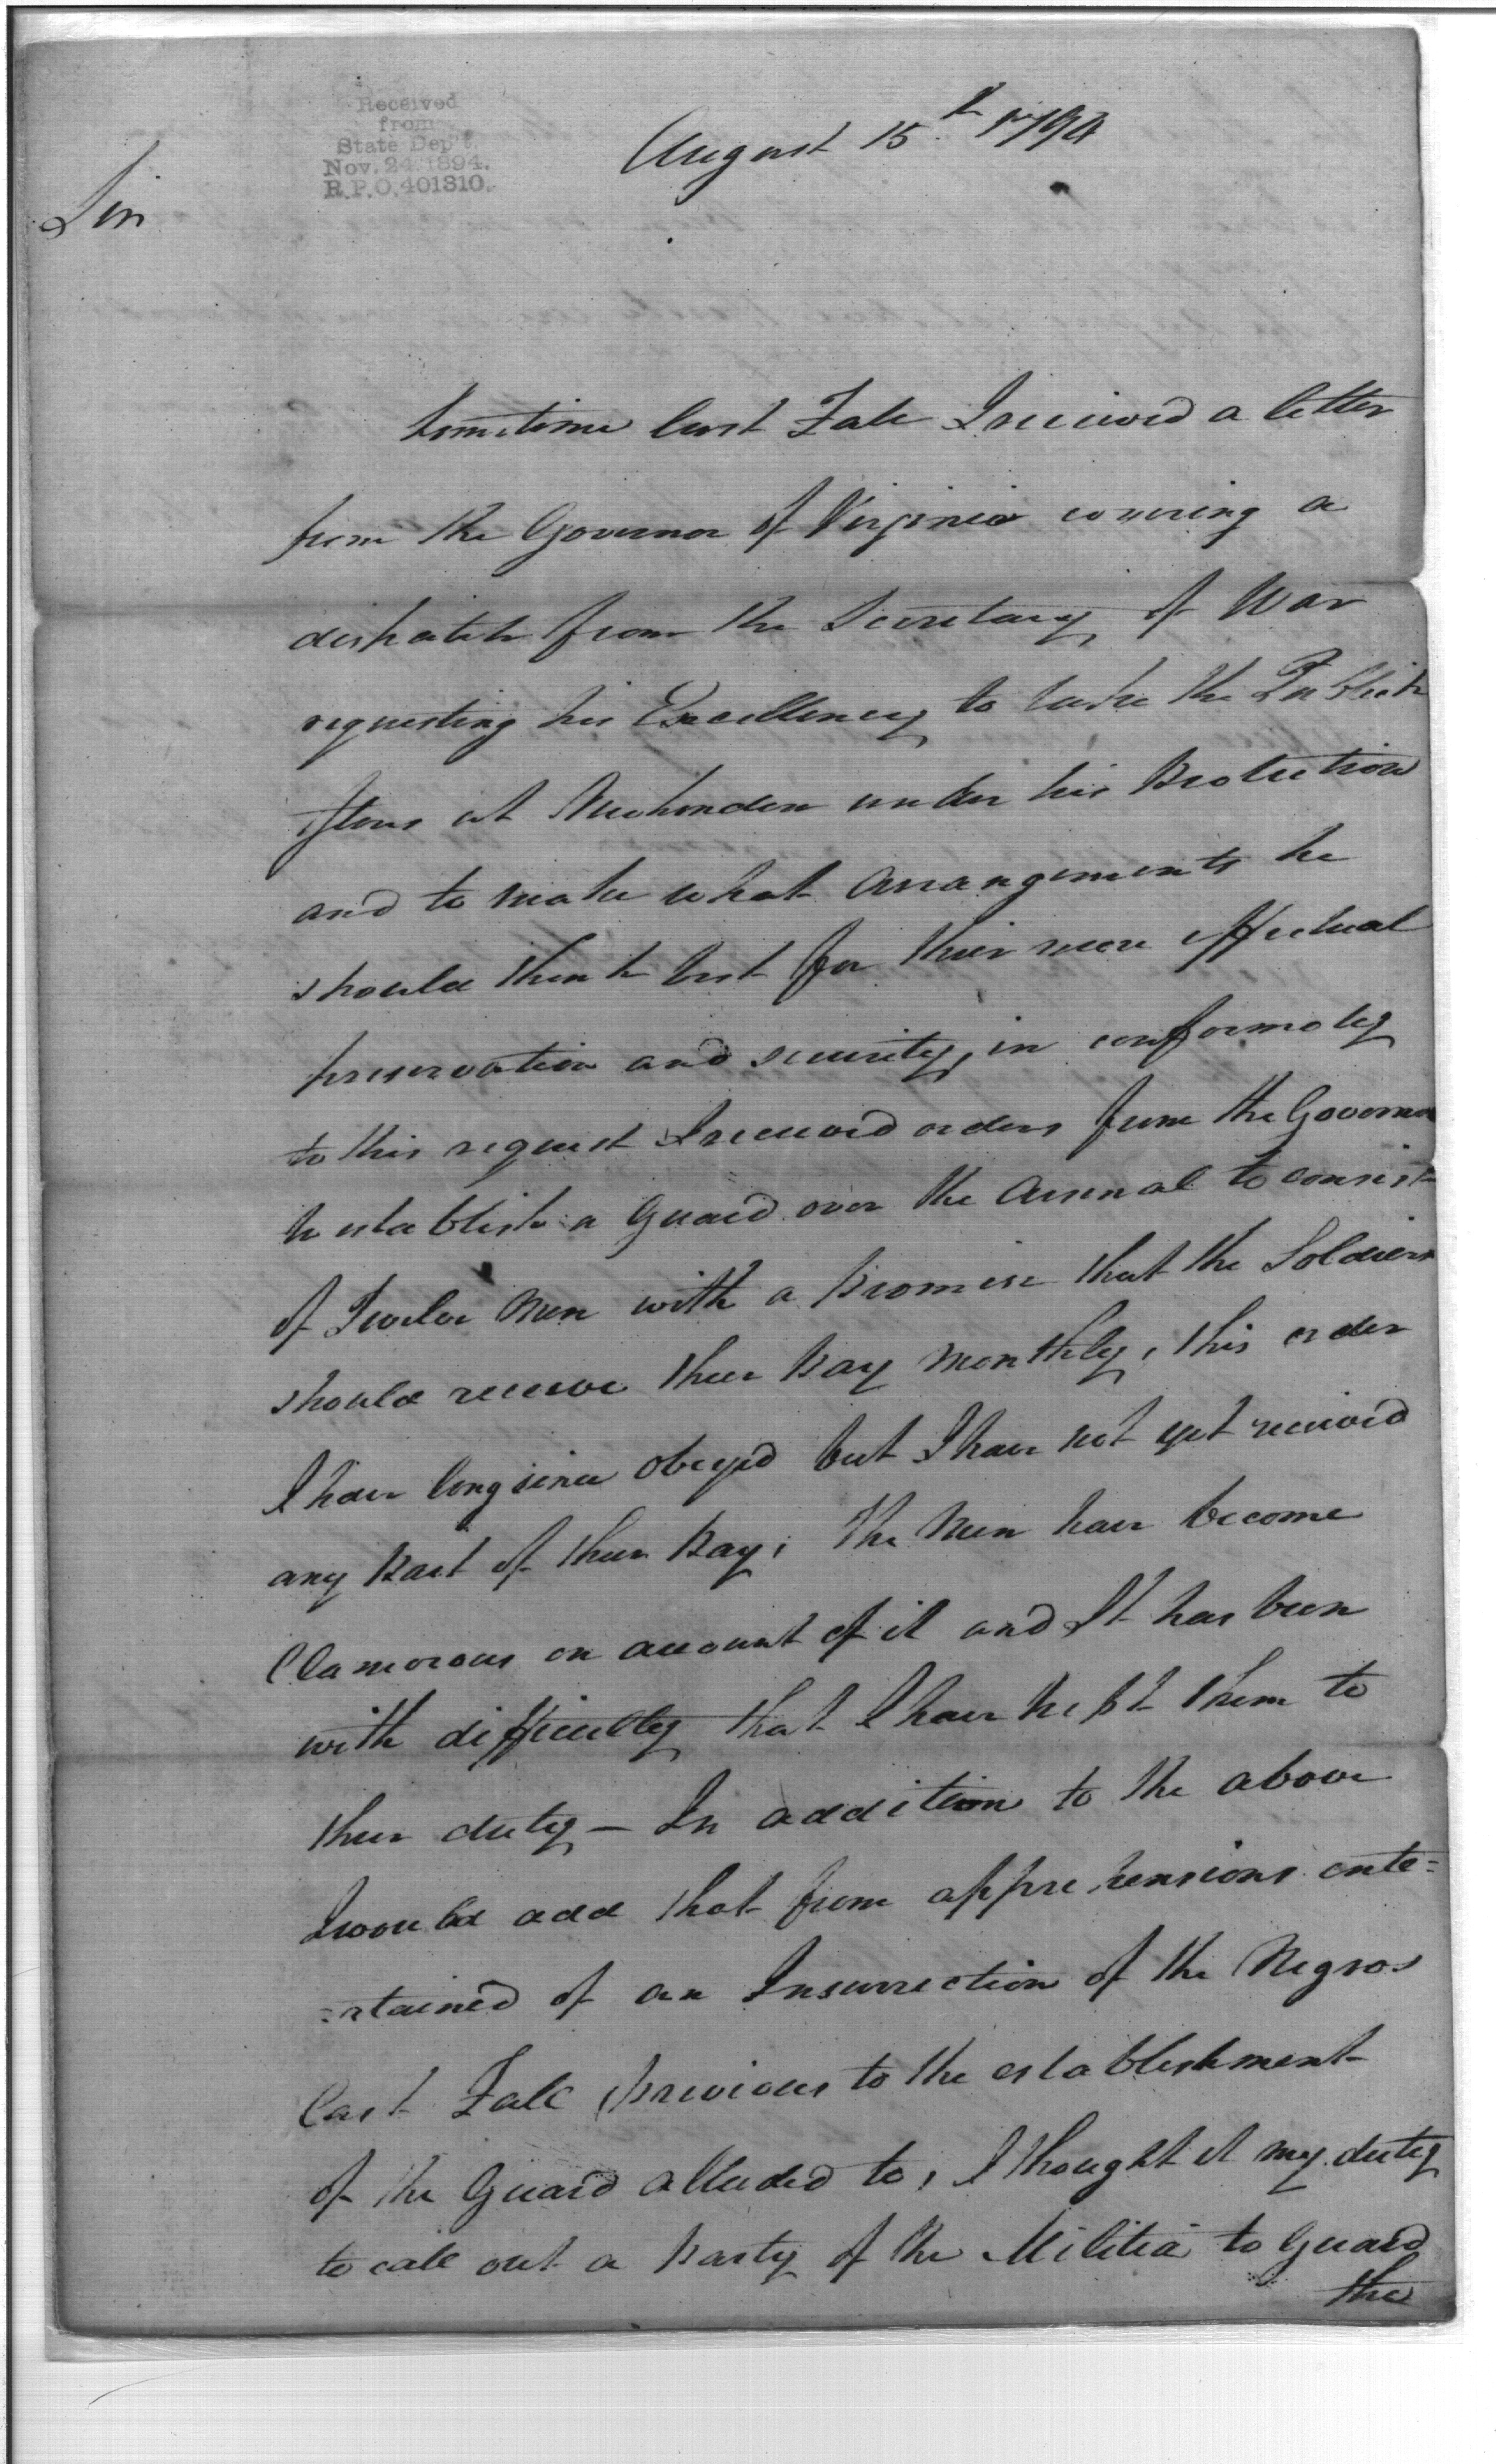 Received
from
State Dep't.
Nov. 24. 1894.
R.P.O. 401310.
August 15th 1794
Sir
Sometime last Fall I received a letter
from the Governor of Virginia covering a
dispatch from the Secretary of War
requesting his Excellency to take the Publick
Stores at New London under his protection
and to make what arrangements he
should think best for their more effectual
preservation and security, in conformoty
to this request I received orders from the Governor
to establish a Guard over the Arsenal to consist
of Twelve Men with a promise that the Soldiers
should receive their pay Monthly, this order
I have long since obeyed but I have not yet received
any part of their pay; The Men have become
Clamorous on account of it and It has been
with difficulty that I have kept them to
their duty — In addition to the above
I would add that from apprehensions ente=
=rtained of an Insurrection of the Negros
last Fall previous to the establishment
of the Guard alluded to, I thought it my duty
to call out a party of the Militia to Guard
the